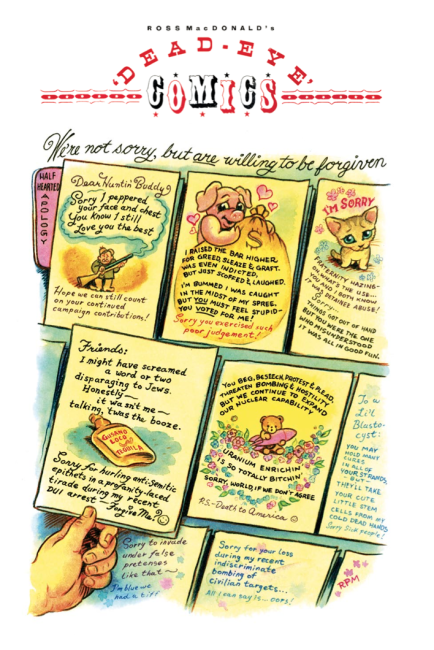 ROSS MacDONALD's
'DEAD-EYE'
COMICS
We're not sorry, but are willing to be forgiven
HALF
HEARTED
APOLOGY
Dear Huntin' Buddy,
Sorry I peppered
your face and chest
You know I still
Love you the best
Hope we can still count
on your continued
campaign contributions!
$
I RAISED THE BAR HIGHER
FOR GREED, SLEAZE & GRAFT.
WAS EVEN INDICTED,
BUT JUST SCOFFED & LAUGHED.
I'M BUMMED I WAS CAUGHT
IN THE MIDST OF MY SPREE.
BUT YOU MUST FEEL STUPID-
YOU VOTED FOR ME!
Sorry you exercised such
poor judgement!
I'M SORRY
FRATERNITY HAZING-
OH WHAT'S THE USE...
YOU AND I BOTH KNOW
IT WAS DETAINEE ABUSE!
Sorry-
THINGS GOT OUT OF HAND
BUT YOU'RE THE ONE
WHO MISUNDERSTOOD
IT WAS ALL IN GOOD FUN.
Friends:
I might have screamed
a word or two
disparaging to Jews.
Honestly—
it wasn't me—
talking, 'twas the booze.
GUSANO
LOCO
TEQUILA
Sorry for hurling anti-Semitic
epithets in a profanity-laced
tirade during my recent
DUI arrest — Forgive Me!
YOU BEG, BESEECH, PROTEST & PLEAD,
THREATEN BOMBING & HOSTILITY,
BUT WE CONTINUE TO EXPAND
OUR NUCLEAR CAPABILITY.
URANIUM ENRICHIN'
SO TOTALLY BITCHIN'
SORRY, WORLD IF WE DON'T AGREE
P.S.-Death to America
To a
Li'l
Blasto-
cyst:
YOU MAY
HOLD MANY
CURES
IN ALL OF
YOUR STRANDS,
BUT
THEY'LL TAKE
YOUR CUTE
LITTLE STEM
CELLS FROM MY
COLD DEAD HANDS
Sorry Sick people!
Sorry to invade
under false
pretenses
like that—
I'm blue we
had a tiff
Sorry for your loss
during my recent
indiscriminate
bombing of
civilian targets...
All I can say is... oops!
RPM